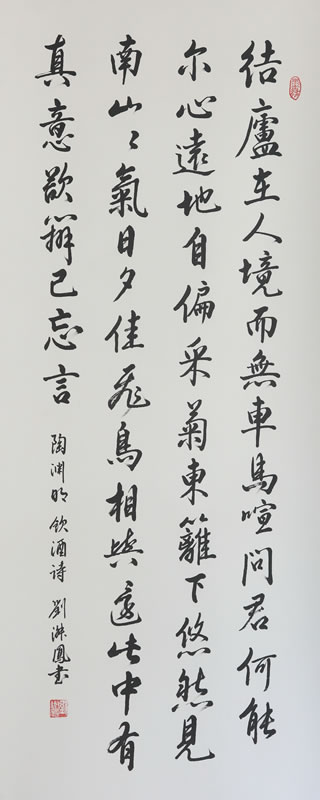 結廬在人境而無車馬喧問君何能
尔心遠地自偏采菊東籬下悠然見
南山〻氣日夕佳飛鳥相與還此中有
真意欲辯已忘言 陶渊明 飲酒詩 劉淑鳳書